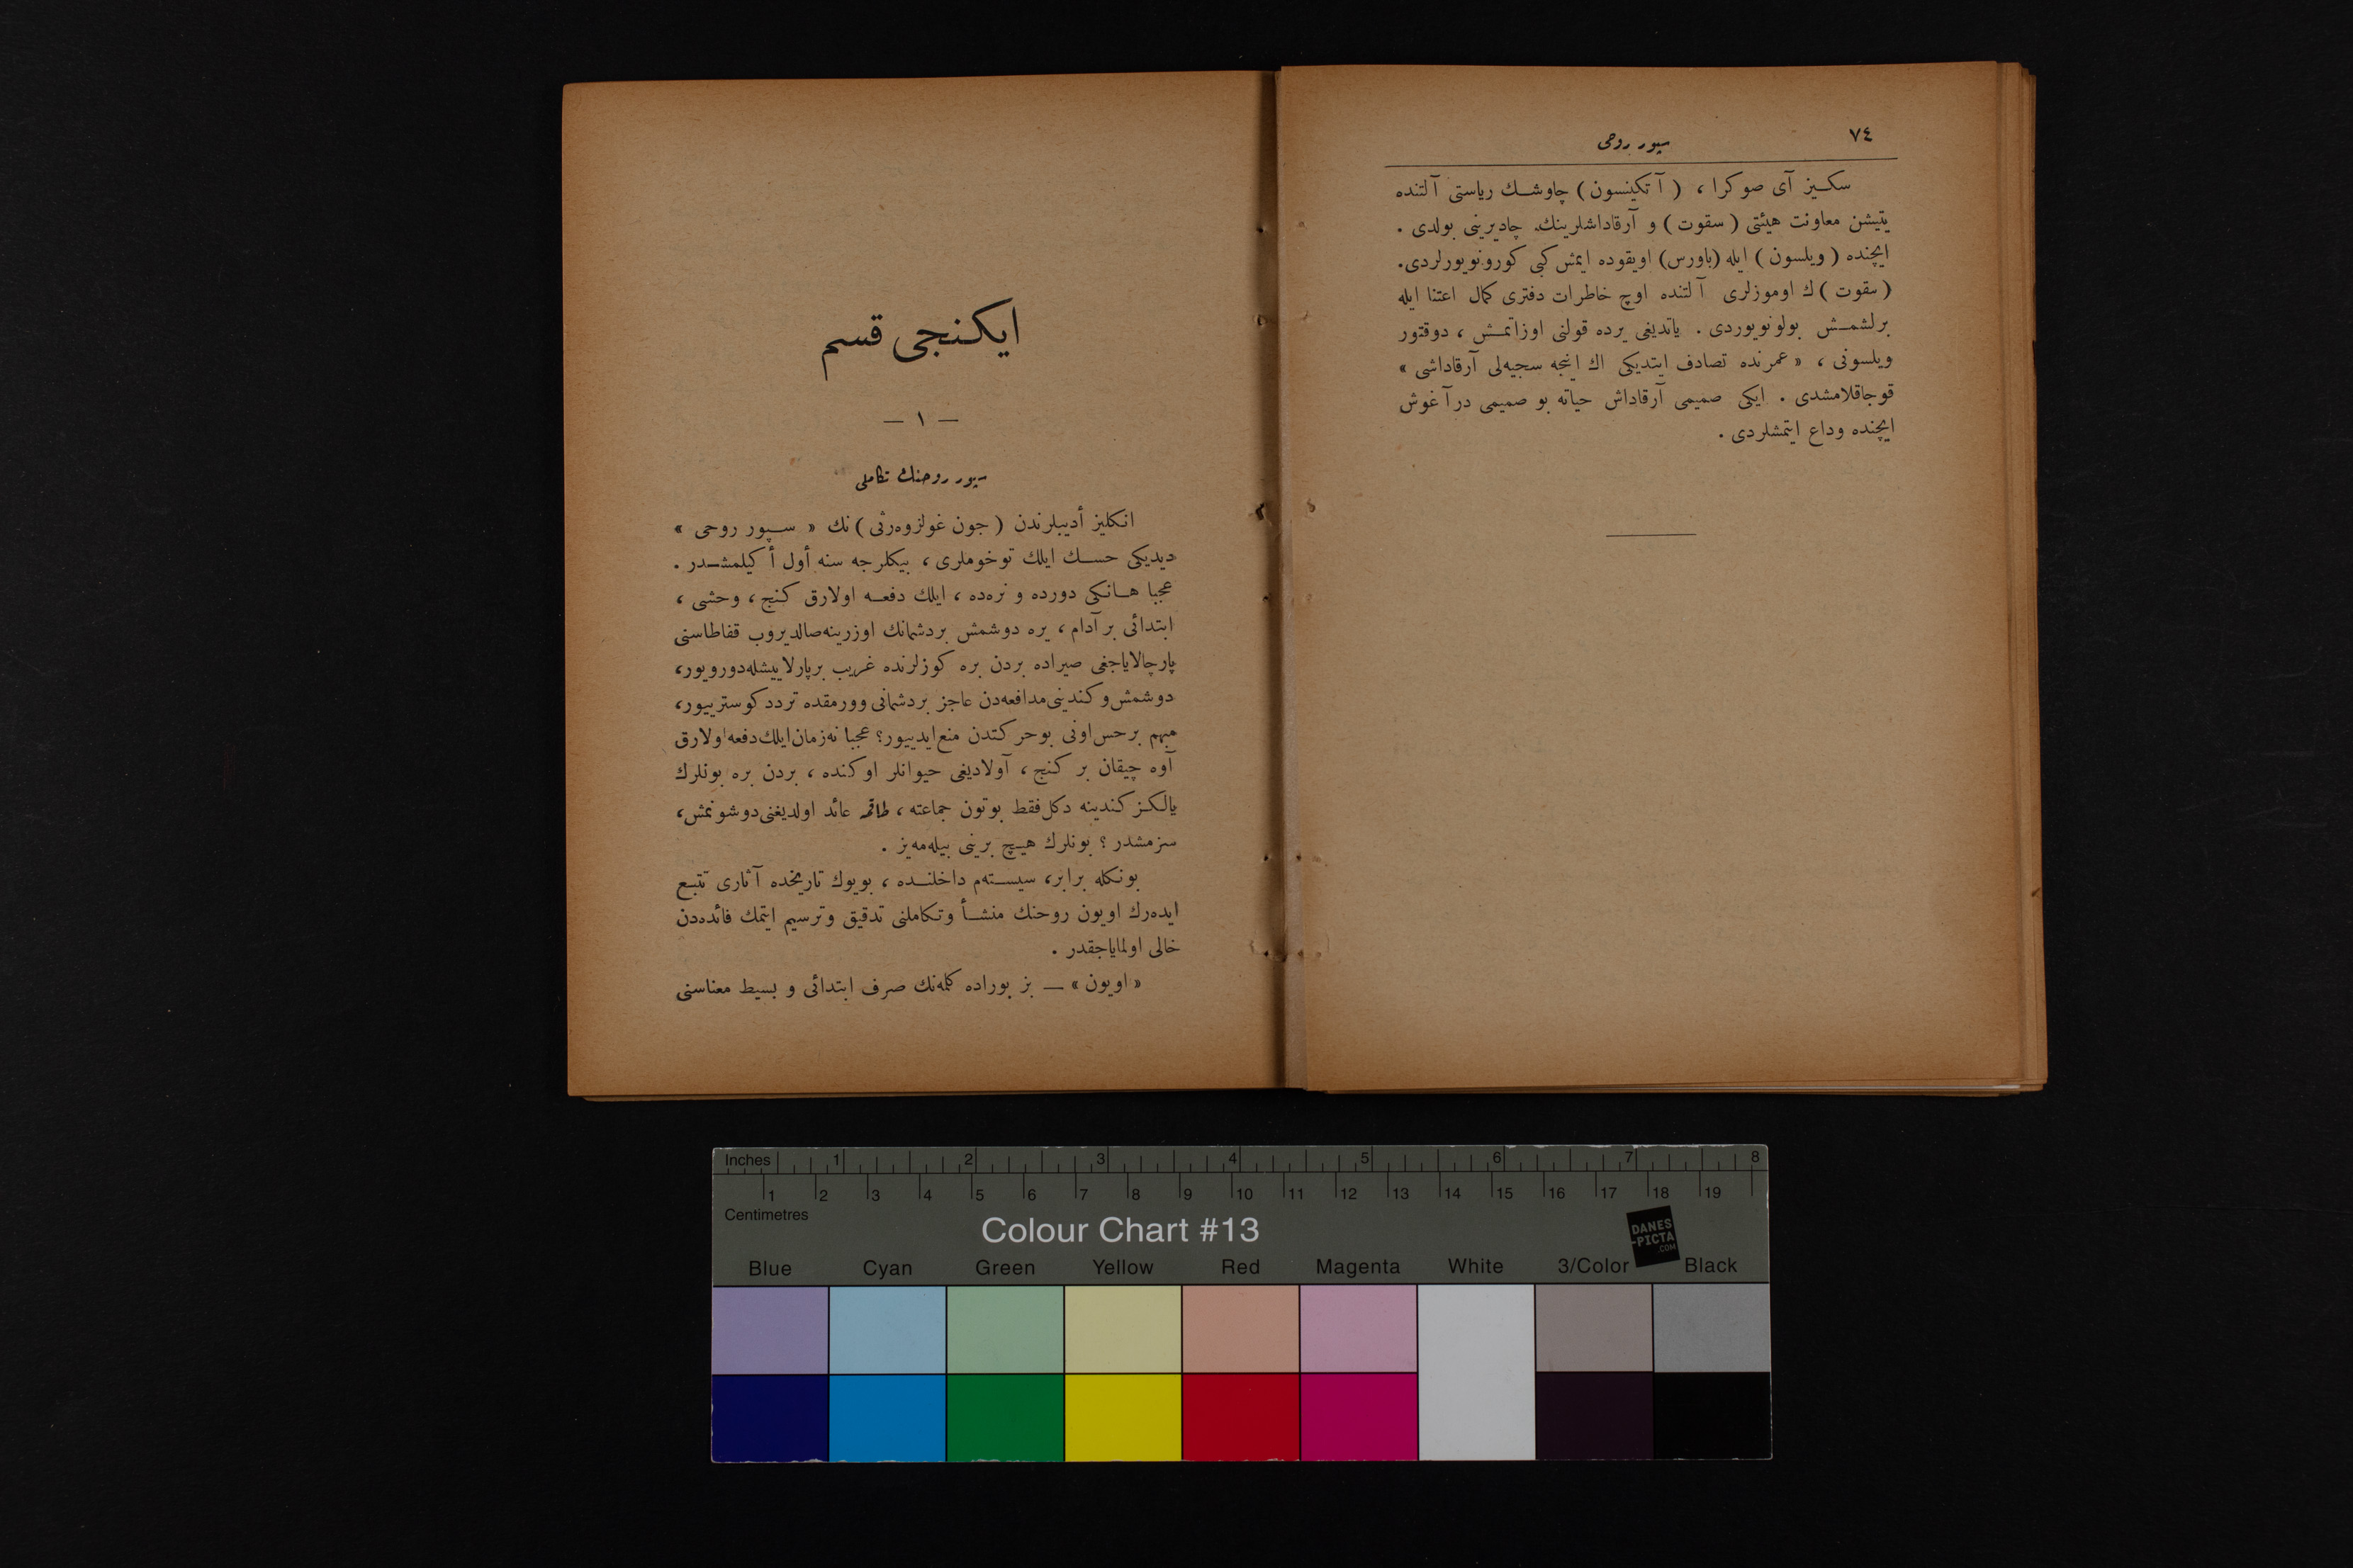 ٧٤
سپور روحى
سكـيز آى صوكرا ، ( آتكينسون ) چاوشـك رياستى آلتنده
يتيشن معاونت هيئتى ( سقوت ) و آرقاداشلرينك چاديرينى بولدى .
ايچنده ( ويلسون ) ايله (باورس) اويقوده ايمش كبى كورونويورلردى.
( سقوت ) ك اوموزلرى آلتنده اوچ خاطرات دفترى كمال اعتنا ايله
برلشمـش بولونويوردى . ياتديغى يرده قولنى اوزاتمـش ، دوقتور
ويلسونى ، « عمرنده تصادف ايتديكى اك اينجه سجيه‌لى آرقاداشى »
قوجاقلامشدى . ايكى صميمى آرقاداش حياته بو صميمى درآغوش
ايچنده وداع ايتمشلردى .
ايكـنجى قسم
— ١ —
سپور روحنك تكاملى
انكليز أديبلرندن ( جون غولزوه‌رثى ) نك « سـپور روحى »
ديديكى حسـك ايلك توخوملرى ، بيكلرجه سنه أول أكيلمشـدر .
عجبا هـانكى دورده و نره‌ده ، ايلك دفعـه اولارق كنج ، وحشى ،
ابتدائى بر آدام ، يره دوشمش بردشمانك اوزرينه‌صالديروب قفاطاسنى
پارچالاياجغى صيراده بردن بره كوزلرنده غريب برپارلاييشله‌دورويور،
دوشمش و كندينى مدافعه‌دن عاجز بردشمانى وورمقده تردد كوسترييور،
مبهم برحس اونى بوحركتدن منع ايدييور؟ عجبا نه‌زمان ايلك دفعه اولارق
آوه چيقان بر كنج ، آولاديغى حيوانلر اوكنده ، بردن بره بونلرك
يالكـز كندينه دكل فقط بوتون جماعته ، طاقمه عائد اولديغنى دوشونمش،
سزمشدر ؟ بونلرك هيـچ برينى بيله‌مه‌يز .
بونكله برابر، سيسـته‌م داخلنـده ، بويوك تاريخده آثارى تتبـع
ايده‌رك اويون روحنك منشـأ وتكاملنى تدقيق وترسيم ايتمك فائده‌دن
خالى اولماياجقدر .
« اويون » — بز بوراده كلمه‌نك صرف ابتدائى و بسيط معناسنى
Inches 1 2 3 4 5 6 7 8
1 2 3 4 5 6 7 8 9 10 11 12 13 14 15 16 17 18 19
Centimetres
Colour Chart #13
DANES
-PICTA
.COM
Blue Cyan Green Yellow Red Magenta White 3/Color Black